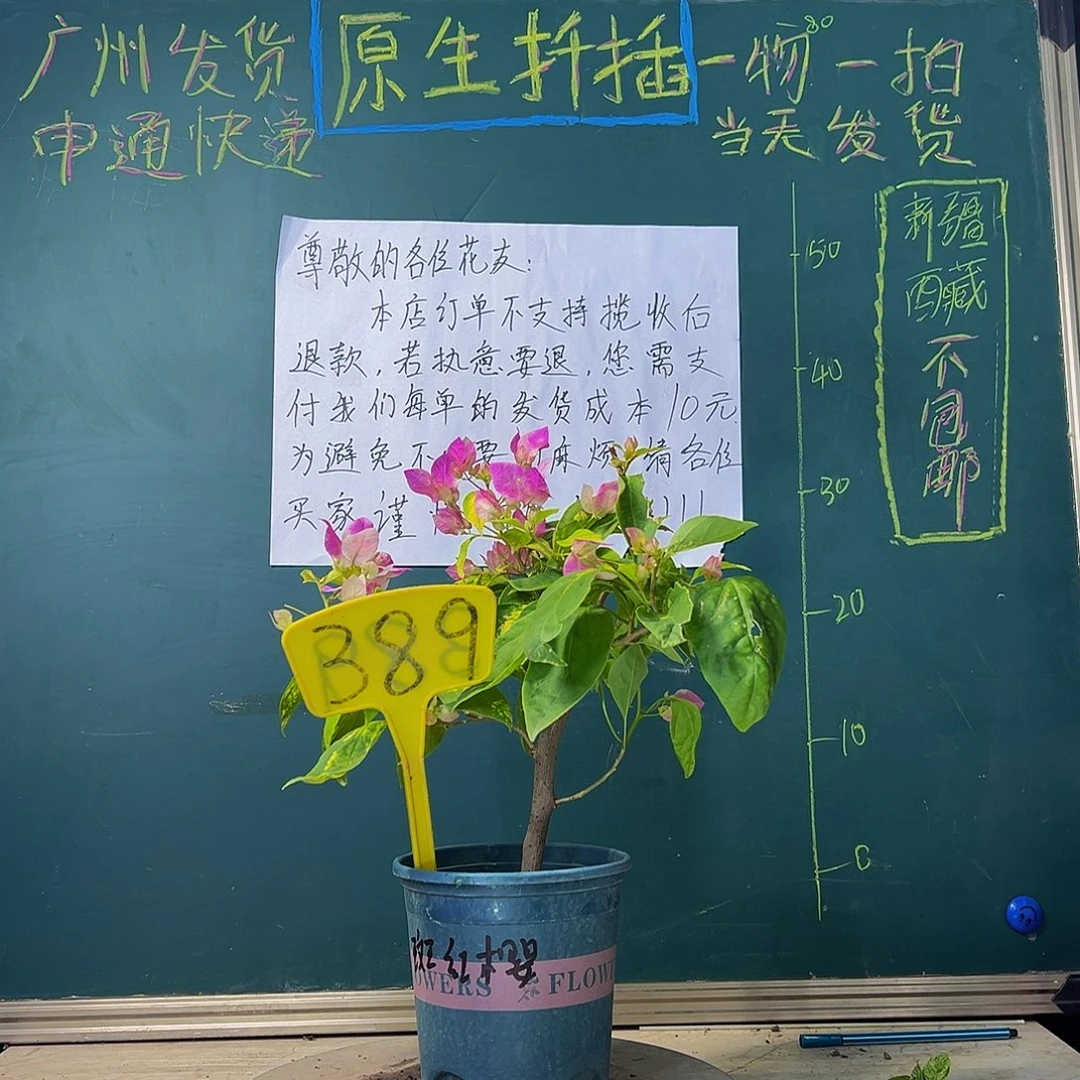 广州发货
申通快递
原生扦插
一物一拍
当天发货
新疆
西藏
不同邮
尊敬的各位花友:
本店订单不支持揽收后
退款,若执意要退,您需支
付我们每单的发货成本10元.
为避免不 要 麻烦 请各位
买家谨
50
40
30
20
10
0
389
斑红
OWERS FLOW